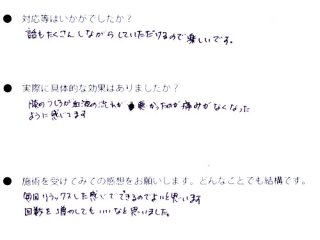 ● 対応等はいかがでしたか？
話もたくさんしながらしていただけるので楽しいです。
● 実際に具体的な効果はありましたか？
膝のうしろが血液の流れが悪かったのが痛みがなくなった
ように感じてます
● 施術を受けてみての感想をお願いします。どんなことでも結構です。
毎回リラックスした感じでできるのでよいと思います
回数を増やしてもいいなと思いました。